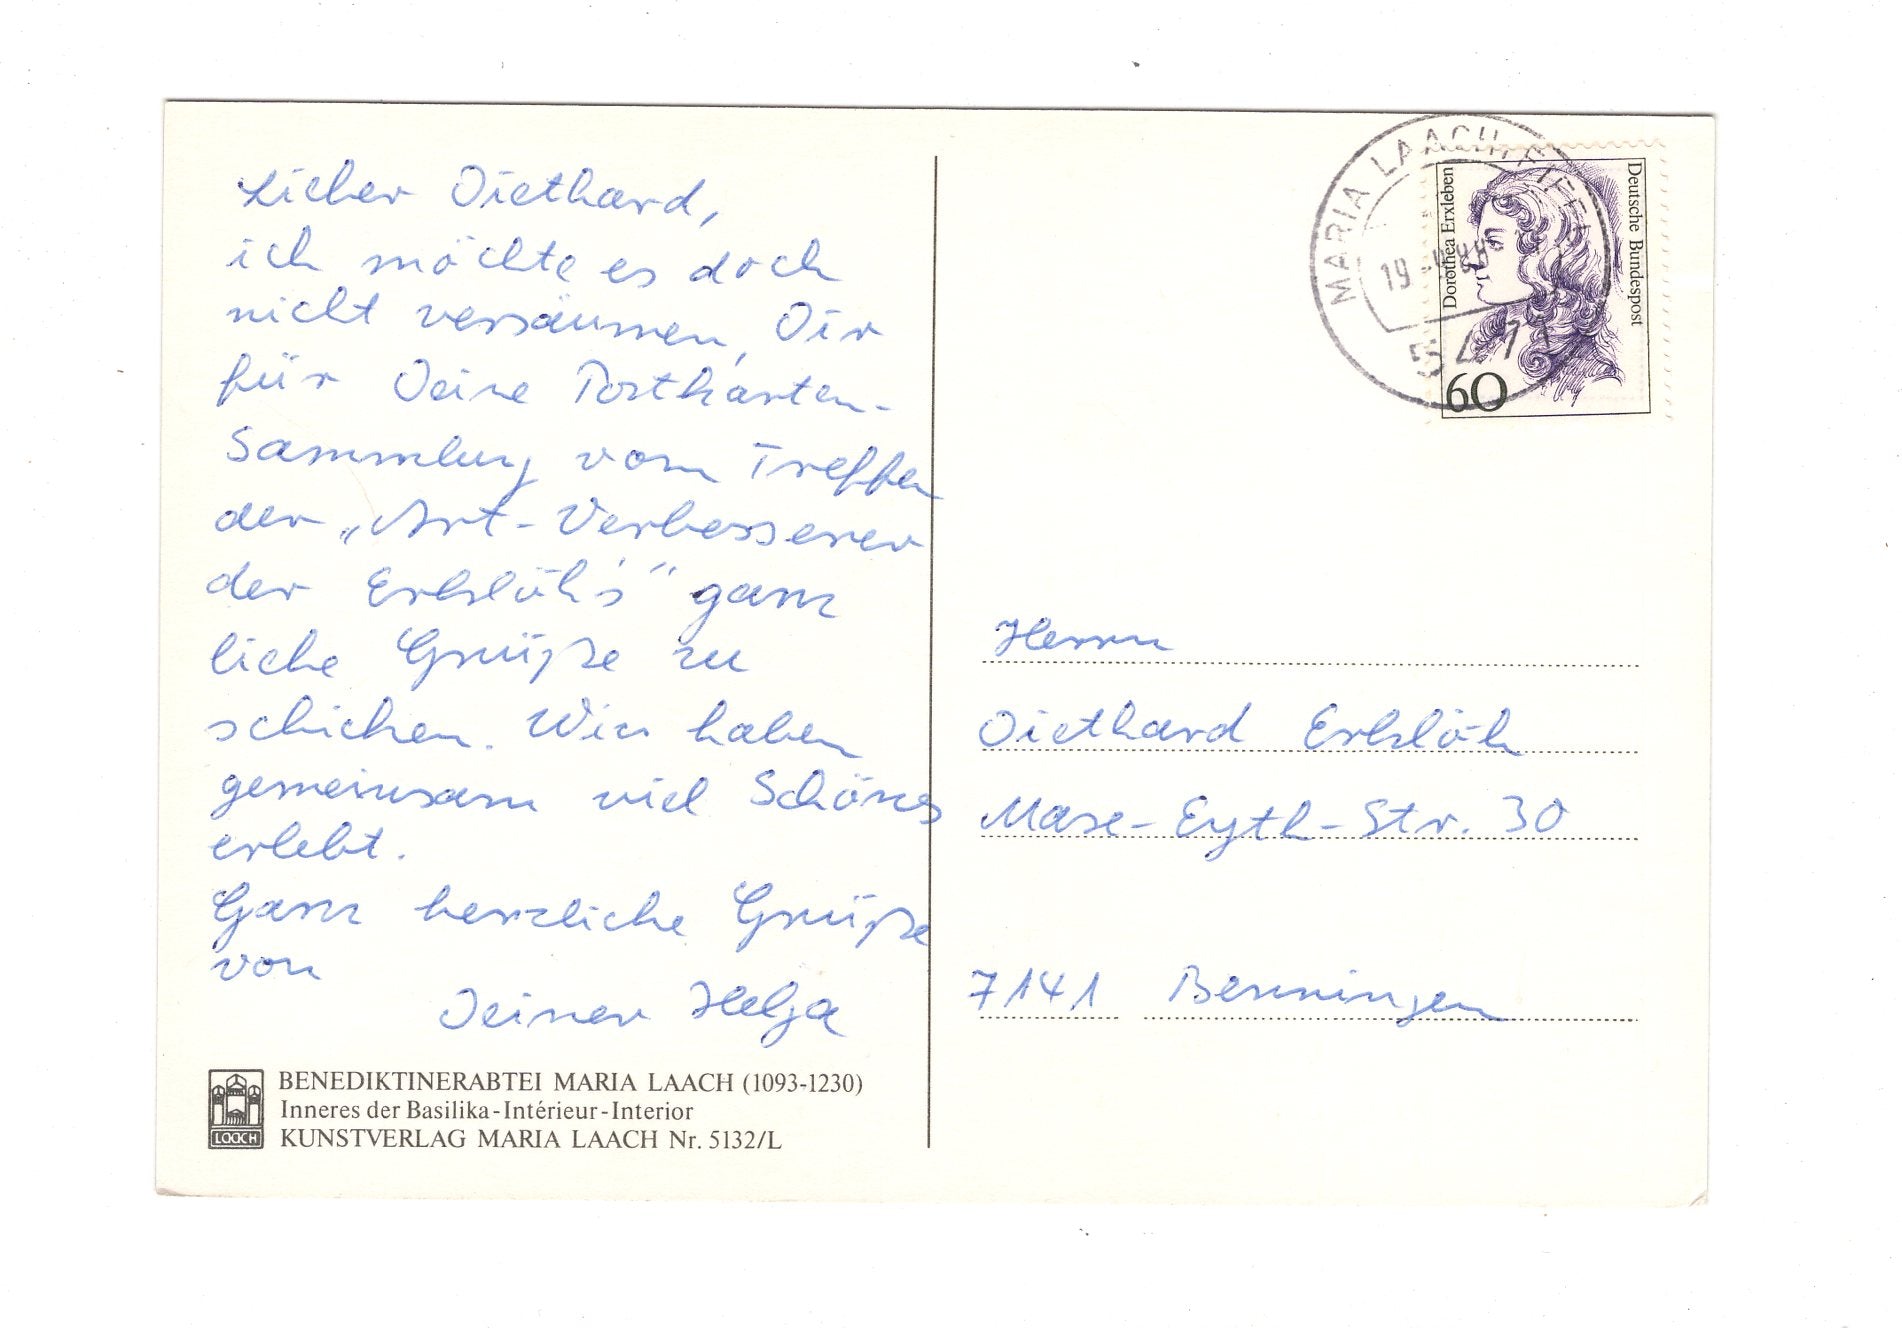 Lieber Diethard,
ich möchte es doch
nicht versäumen, Dir
für Deine Postkarten-
Sammlung vom Treffen
der „Art-Verbesserer
der Erbslöh's" ganz
liche Grüße zu
schicken. Wir haben
gemeinsam viel Schönes
erlebt.
Ganz herzliche Grüße
von
Deiner Helga
BENEDIKTINERABTEI MARIA LAACH (1093-1230)
Inneres der Basilika-Intérieur-Interior
KUNSTVERLAG MARIA LAACH Nr. 5132/L
LAACH
MARIA LAACH, EIFEL
19
5471
Dorothea Erxleben
Deutsche Bundespost
60
Herrn
Diethard Erbslöh
Max-Eyth-Str. 30
7141 Benningen